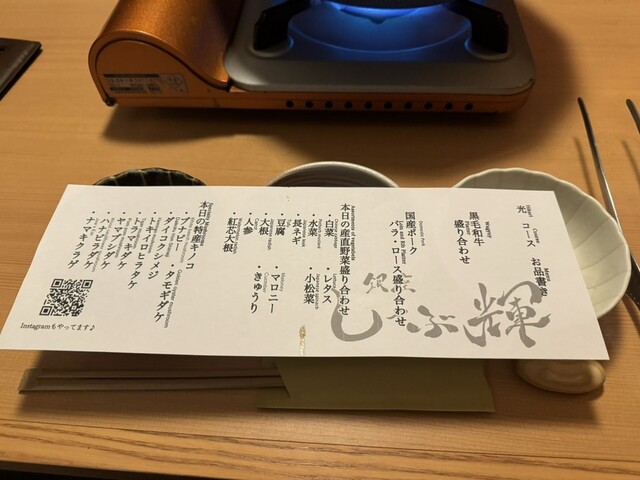 光 コース お品書き
Hikari Course Menu
黒毛和牛
Wagyu
盛り合わせ
国産ポーク
Domestic Pork
バラ・ロース盛り合わせ
本日の産直野菜盛り合わせ
Assortments of Vegetables
・白菜 ・レタス
・水菜 ・小松菜
・長ネギ
・豆腐 ・マロニー
・大根 ・きゅうり
・人参
・紅芯大根
本日の特産キノコ
・ブナピー ・タモギダケ
・ダイコクシメジ
・トキイロヒラタケ
・トラマキダケ
・ヤマブシダケ
・ハナビラダケ
・ナマキクラゲ
Instagramもやってます♪
銀座
しゃぶ輝